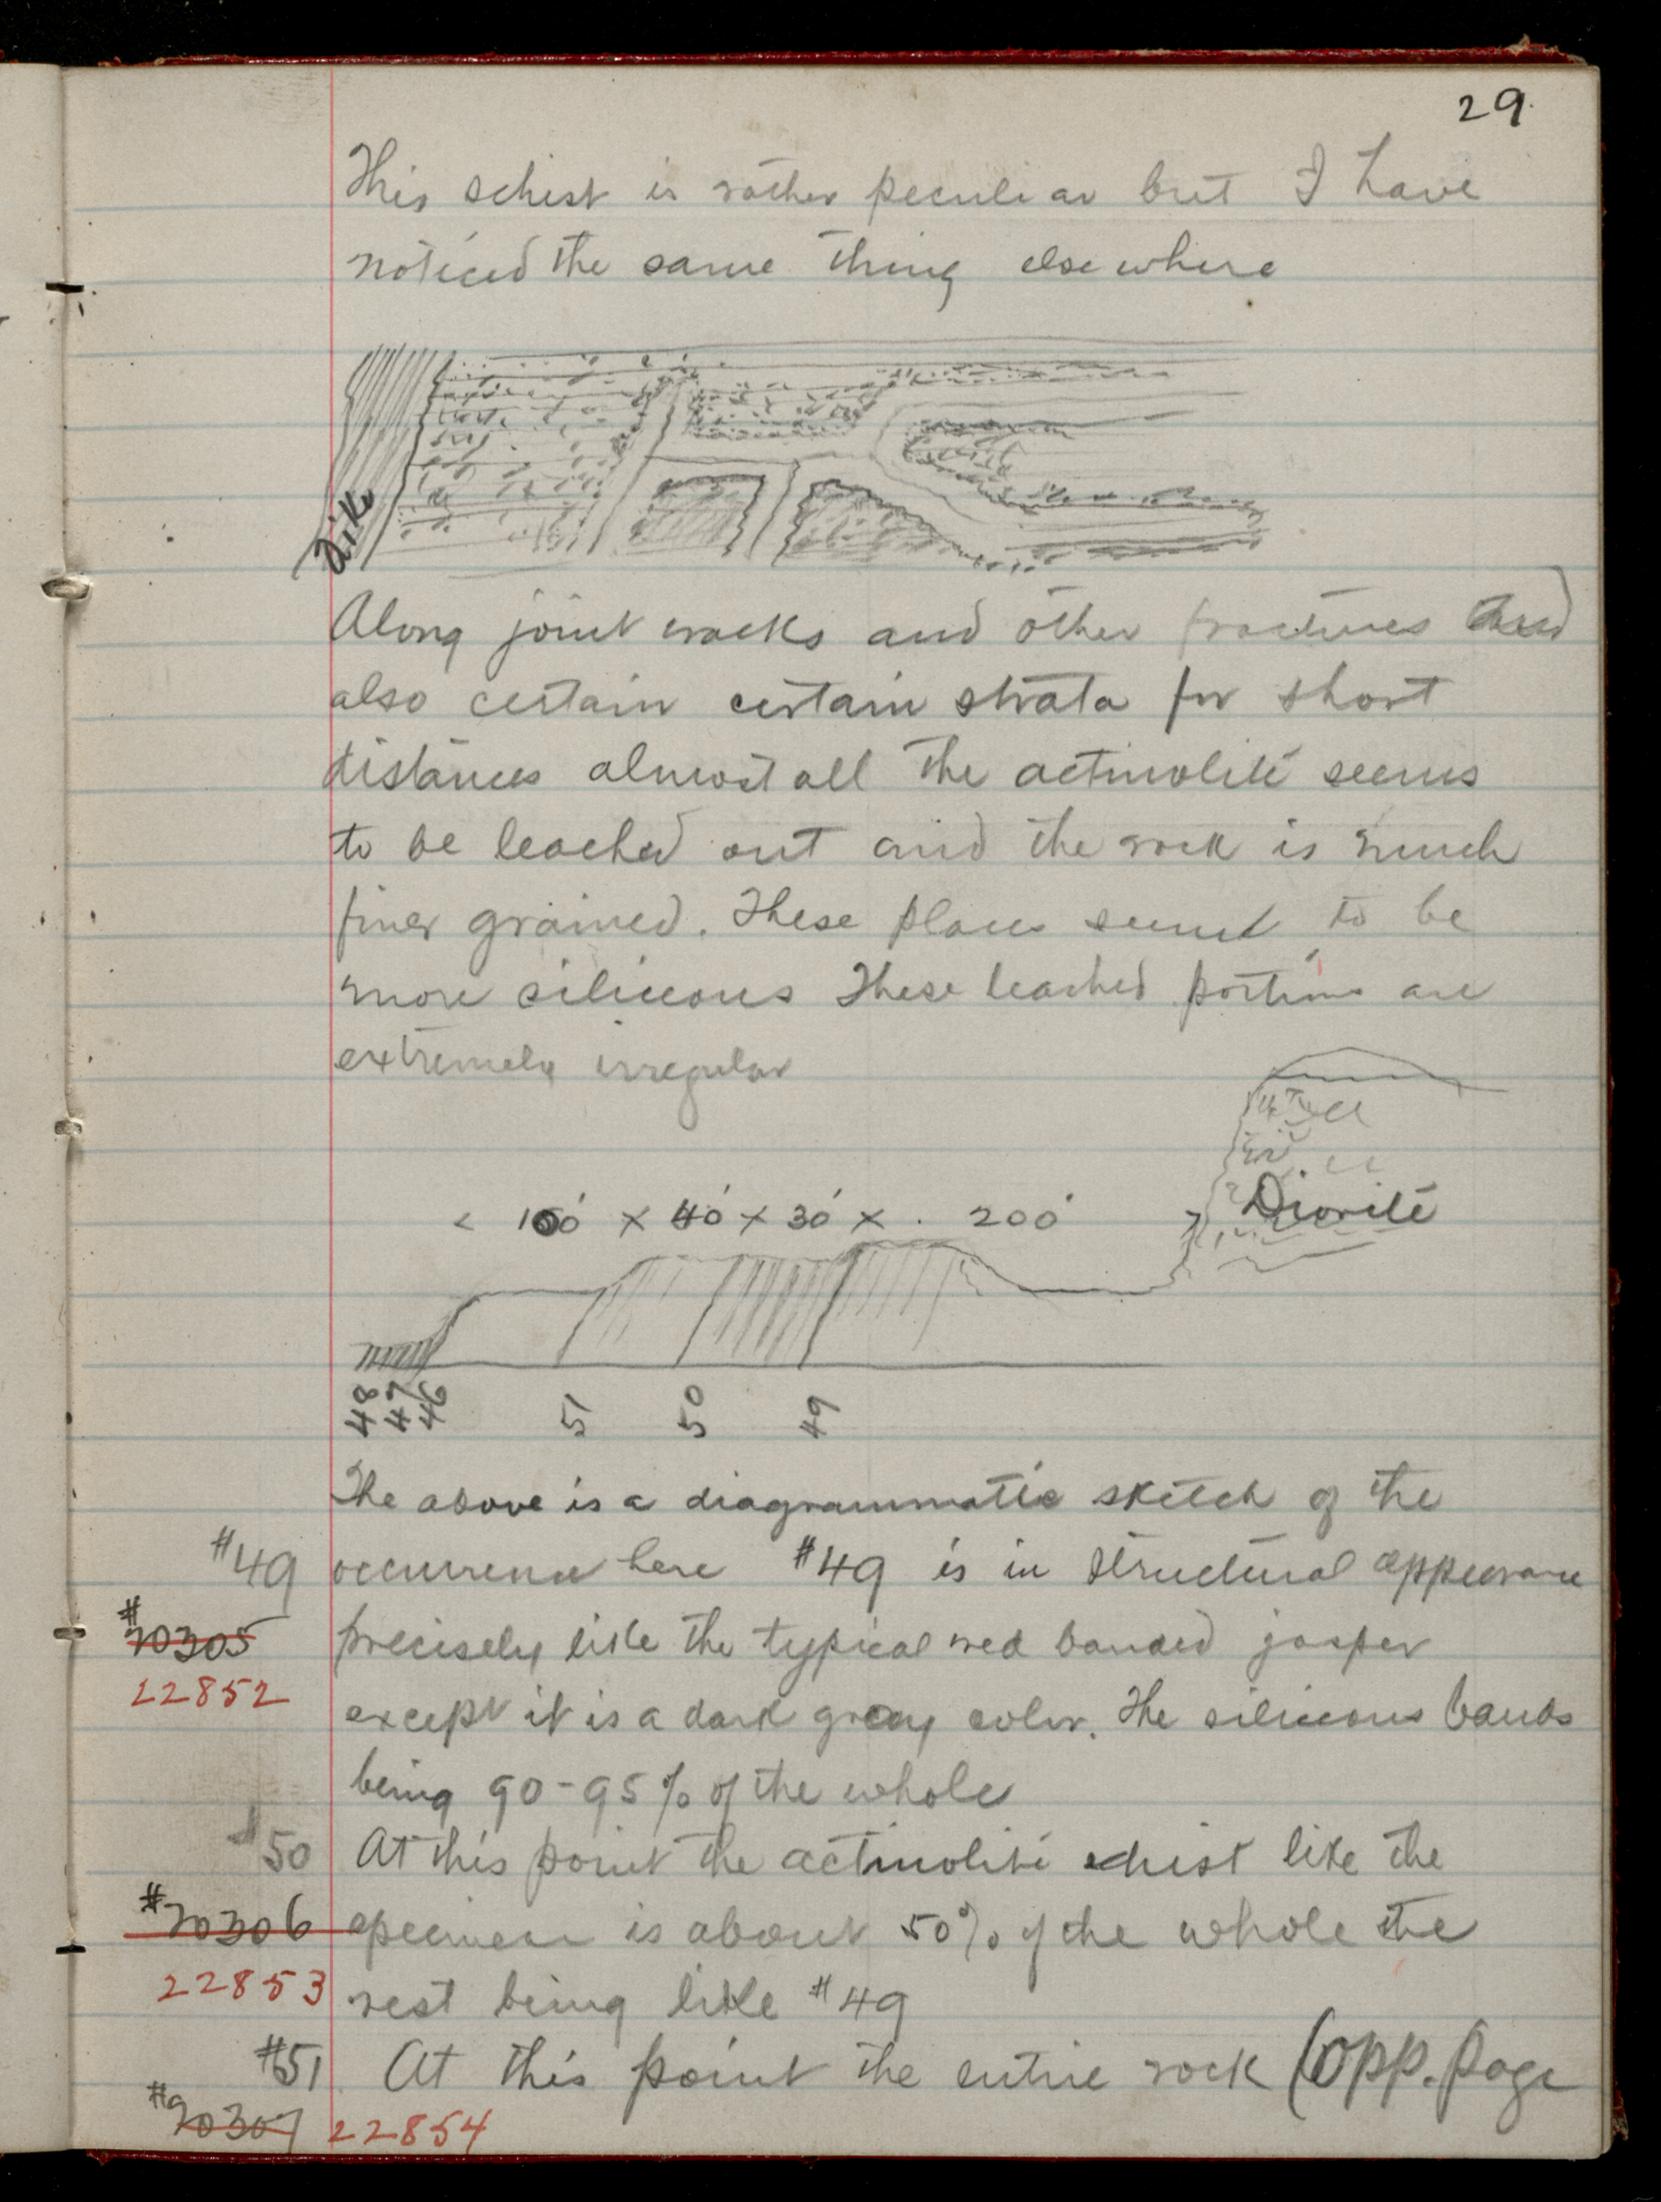 29
This schist is rather peculiar but I have
noticed the same thing elsewhere
Dike
Along joint cracks and other fractures and
also certain certain strata for short
distances almost all the actinolite seems
to be leached out and the rock is much
finer grained. These places seemed to be
more siliceous These leached portions are
extremely irregular
< 100' x 40' x 30' x 200'
Diorite
48 47 46 51 50 49
The above is a diagrammatic sketch of the
#49 occurrence here #49 is in structural appearance
#20305 precisely like the typical red banded jasper
22852 except it is a dark gray color. The siliceous bands
being 90-95% of the whole
#50 At this point the actinolite schist like the
#20306 specimen is about 50% of the whole the
22853 rest being like #49
#51 At this point the entire rock (opp. page
#20307 22854